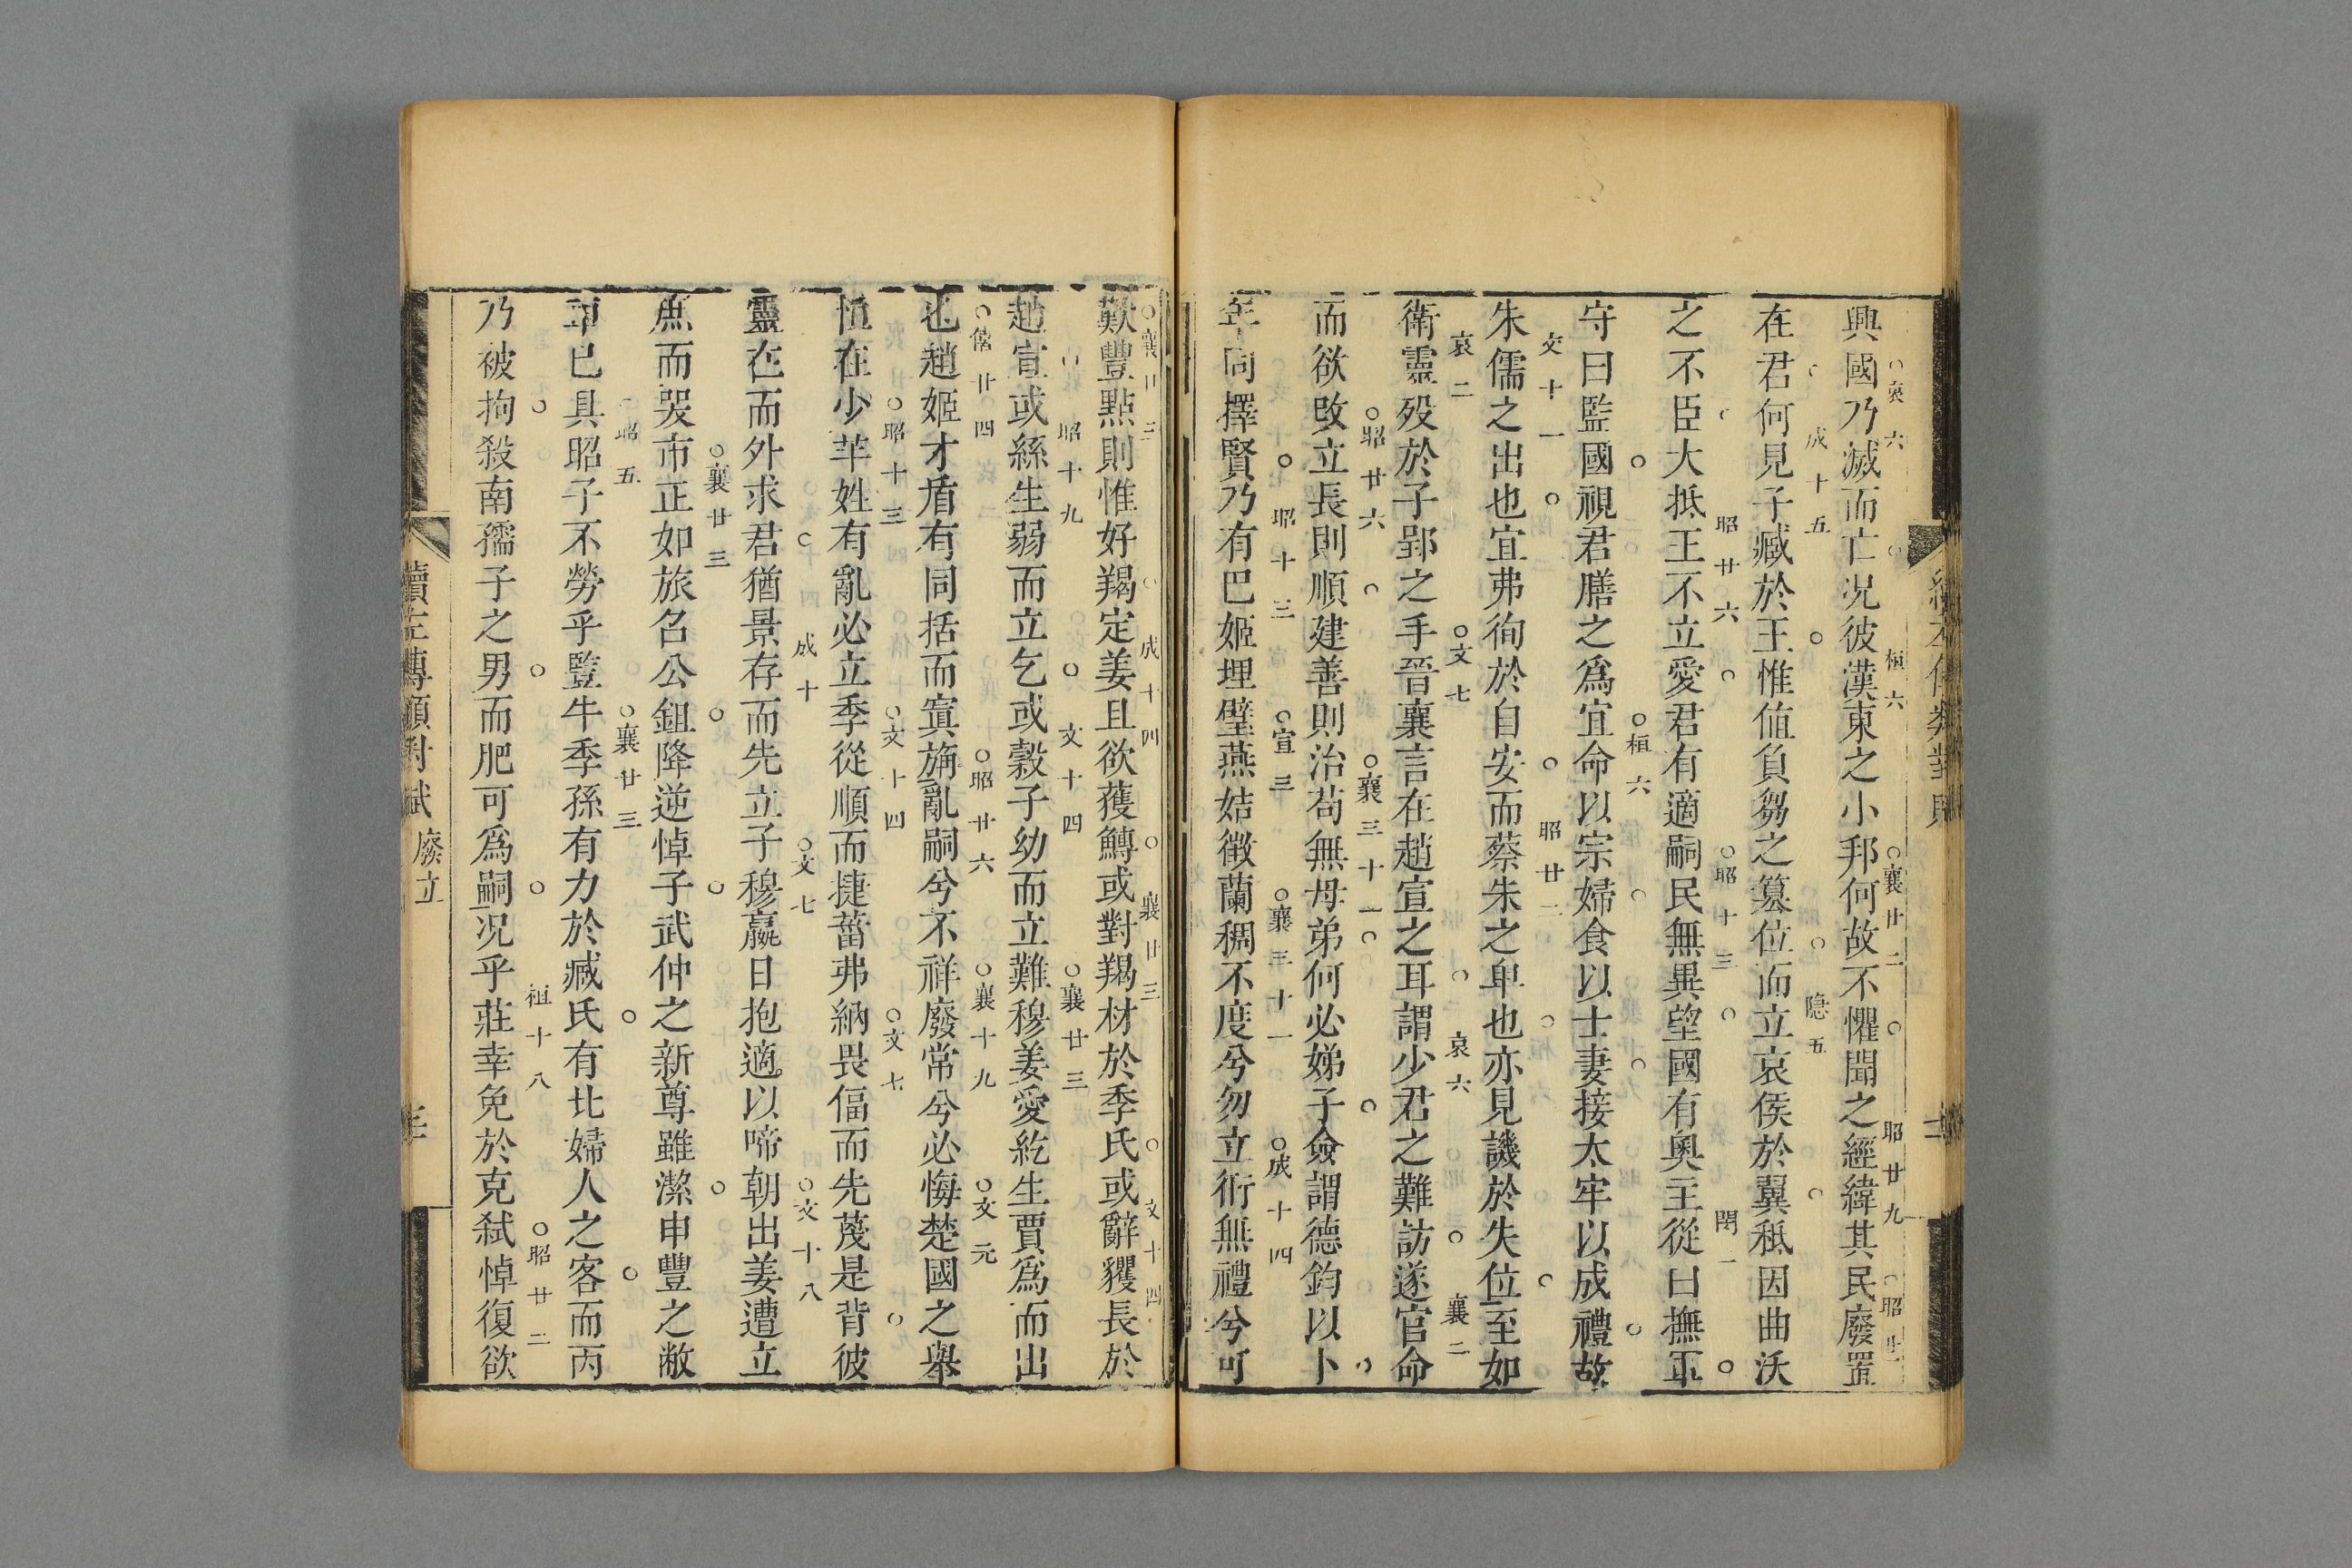 興國乃滅而亡况彼漢東之小邦何故不懼聞之經緯其民廢置
在君何見子臧於王惟值負芻之簒位而立哀侯於翼秪因曲沃
之不臣大抵王不立愛君有適嗣民無異望國有奧主從曰撫軍
守曰監國視君膳之爲宜命以宗婦食以士妻接太牢以成禮故
朱儒之出也宜弗徇於自安而蔡朱之卑也亦見譏於失位至如
衛靈殁於子郢之手晉襄言在趙宣之耳謂少君之難訪遂官命
而欲改立長則順建善則治苟無母弟何必娣子僉謂德鈞以卜
年同擇賢乃有巴姬埋璧燕姞徵蘭稠不度兮勿立衎無禮兮可
歎豐點則惟好羯定姜且欲蒦鱄或對羯材於季氏或辭貜長於
趙宣或絲生弱而立乞或縠子幼而立難穆姜愛紇生賈爲而出
也趙姬才盾有同括而寘旃亂嗣兮不祥廢常兮必悔楚國之舉
恒在少芊姓有亂必立季從順而捷菑弗納畏偪而先蔑是背彼
靈在而外求君猶景存而先立子穆嬴日抱適以啼朝出姜遭立
庶而哭市正如旅名公鉏降逆悼子武仲之新尊雖潔申豐之敝
車已具昭子不勞乎豎牛季孫有力於臧氏有比婦人之客而丙
乃被拘殺南孺子之男而肥可爲嗣况乎莊幸免於克弑悼復欲
廢立